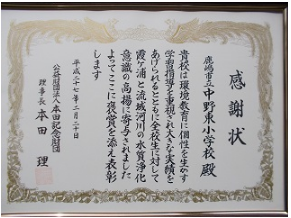 感謝状
鹿嶋市立中野東小学校 殿
貴校は環境教育に個性を生かす
学習指導を重視され大きな実績を
あげられるとともに全校生に対して
霞ヶ浦と流域河川の水質浄化
意識の高揚に寄与されました
よってここに褒賞を添え表彰
します
平成二十七年二月二十日
公益財団法人本田記念財団
理事長 本田 理